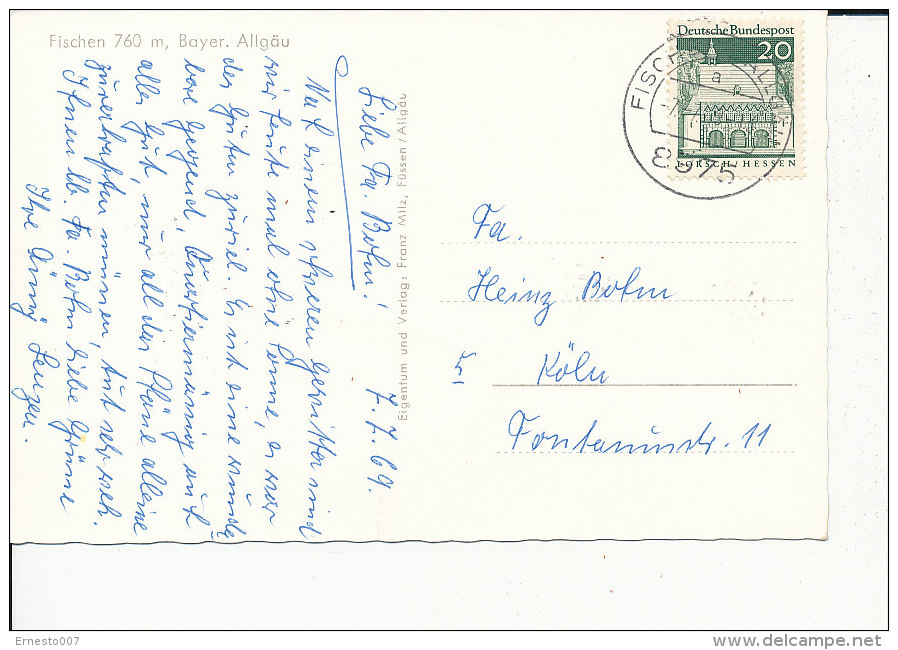 Fischen 760 m, Bayer. Allgäu
7.7.69.
Liebe Fa. Bohm!
Nach einem schweren Gewitter sind
wir heute mal ohne Sonne, es war
des Guten zuviel. Es ist eine wunder
bare Gegend, Quartiermässig auch
alles gut, nur all die Pläne alleine
zu müssen, tut sehr weh.
Ihnen lb. Fa. Bohm liebe Grüsse
Ihre Änny
Eigentum und Verlag: Franz Milz, Füssen/Allgäu
Deutsche Bundespost
20
LORSCH/HESSEN
FISCHEN
a
8975
Fa.
Heinz Bohm
5 Köln
11
Ernesto007
delcampe.net